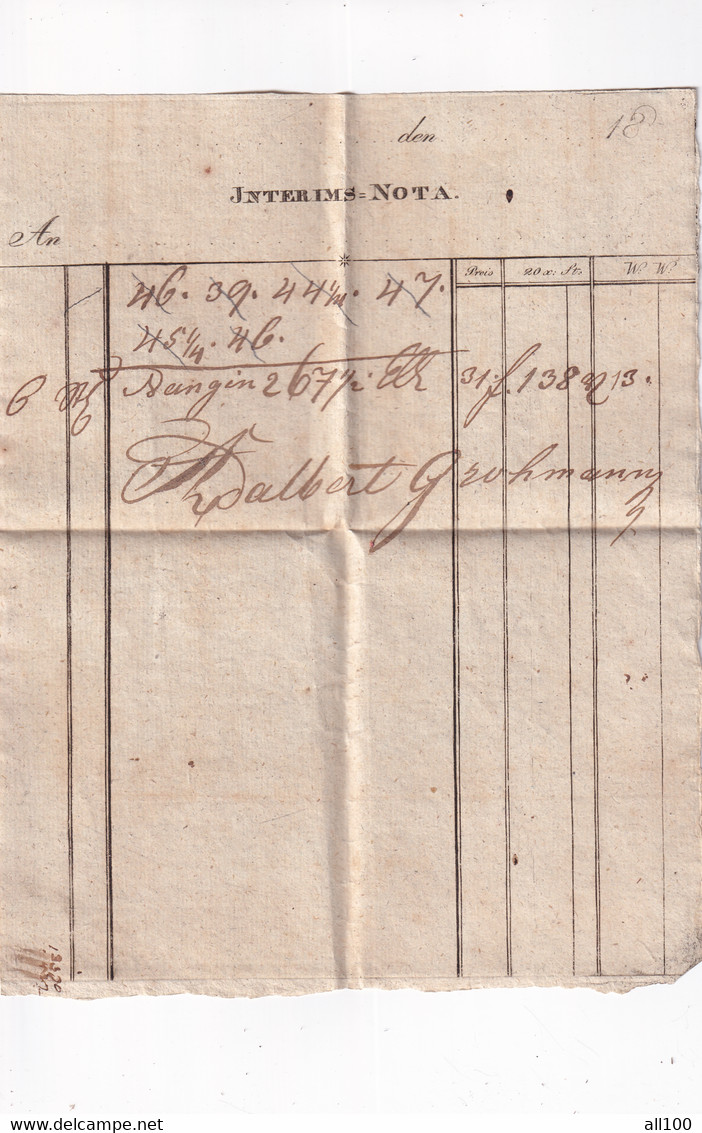 den 18
INTERIMS=NOTA.
An
Preis 20 x: St. W. W.
46. 39. 44 1/2. 47.
45 1/4. 46.
6 267 1/2. 31. f. 138 13.
Adalbert Grohmann